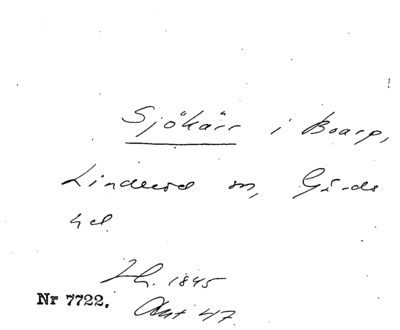 Sjökärr i Boarp,
Linderöd sn, Gärds
hd.
Lh. 1845
Nr 7722. Akt 47